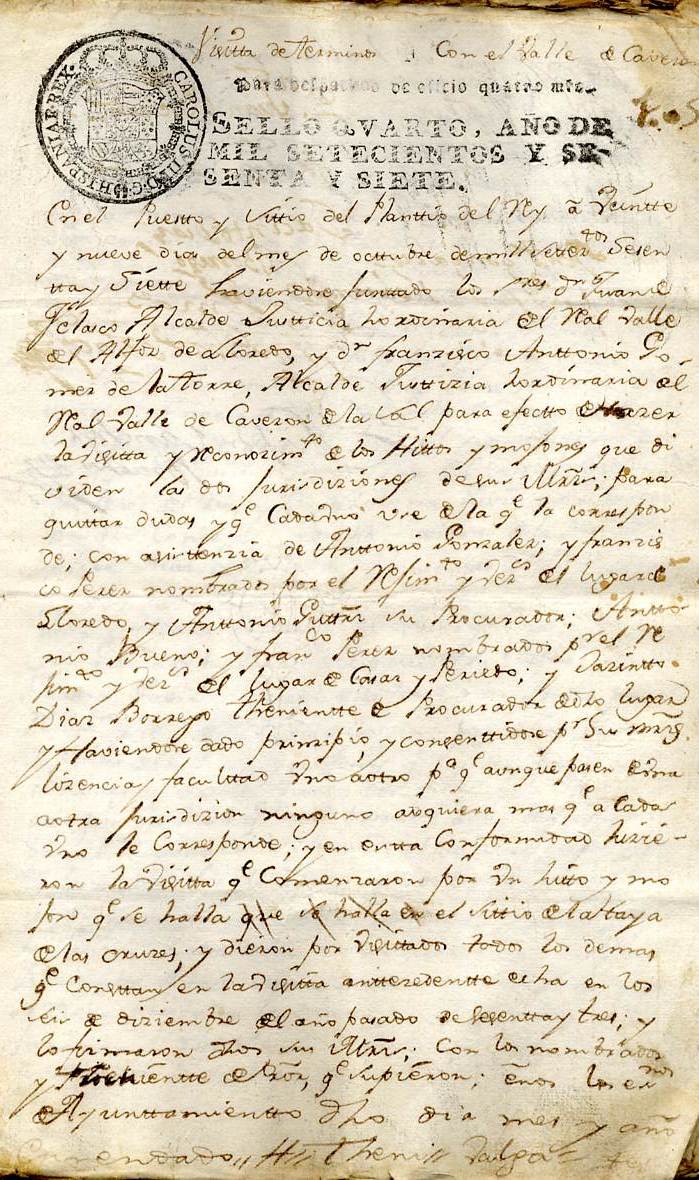 Visitta de terminos Con el Valle de Caveron
CAROLUS III D.G. HISPANIAR. REX.
Para despachos de oficio quatro mrs.
SELLO QVARTO, AÑO DE
MIL SETECIENTOS Y SE-
SENTA Y SIETE.
En el Puestto y Sittio del Planttio del Rey a Veintte
y nueve dias del mes de octtubre de mill settetos Sesen
tta y Siette haviendose junttado los Sres Dn Juan de
Velasco Alcalde Justticia hordinaria del Real Valle
del Alfoz de Lloredo, y Dn francisco Anttonio Go
mez de la Torre, Alcalde Justtizia hordinaria del
Real Valle de Caveron de la Sal para efectto de Hazer
la Visitta y Reconozimto de los Hittos y mojones que di
viden las dos Jurisdiziones de sus Mrzs; para
quittar dudas y qe Cada uno use de la qe la correspon
de; con asisttenzia de Anttonio Gonzalez; y franzis
co Perez nombrados por el Rejimto y Vezos del lugar de
Lloredo, y Anttonio Guttrrz su Procurador; Antto
nio Bueno; y franco Perez nombrados pr el Re
jimto y Vezos del lugar de Casar y Periedo; y Jazintto
Diaz Borrego thenientte de Procurador de dho lugar
y Haviendose dado prinzipio, y consenttidose pr Sus Mrzs
lizencia y facultad uno a otro pa qe aunque pasen de una
a otra Jurisdizion ninguno adquiera mas qe a Cada
Uno le Corresponde; y en estta Conformidad hizie-
ron la Visitta qe Comenzaron por Un hitto y mo
jon qe se halla que se halla en el sittio de la Haya
de las Cruzes; y dieron por Visittados todos los demas
qe Consttan en la Visitta anttezedentte echa en los
seis de diziembre del año pasado de sesentta y tres; y
lo firmaron dhos sus Mrzs; con los nombrados
y thenientte de Pror, qe supieron; en los
de Ayunttamientto dho dia mes y año
Enmendado